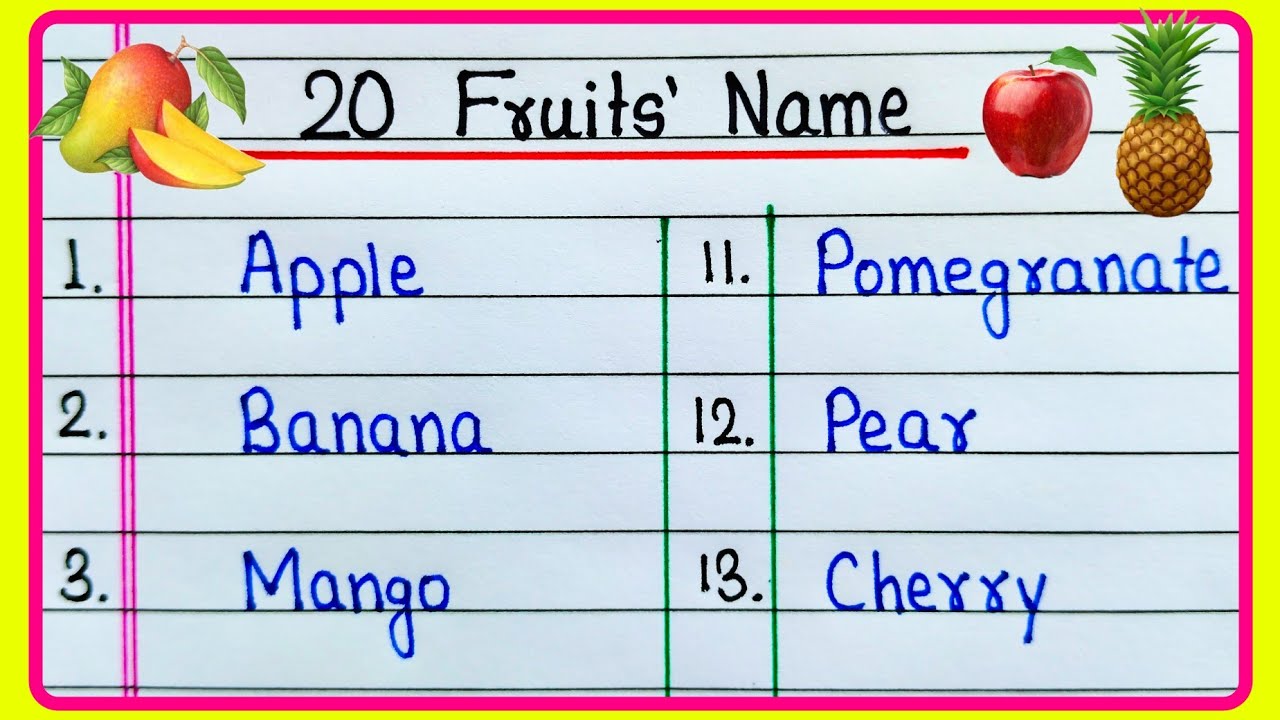 20 Fruits' Name
1. Apple 11. Pomegranate
2. Banana 12. Pear
3. Mango 13. Cherry